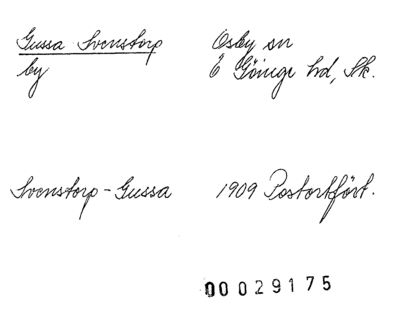 Gussa Svenstorp Osby sn
by Ö Göinge hd, Sk.
Svenstorp-Gussa 1909 Postortfört.
00029175